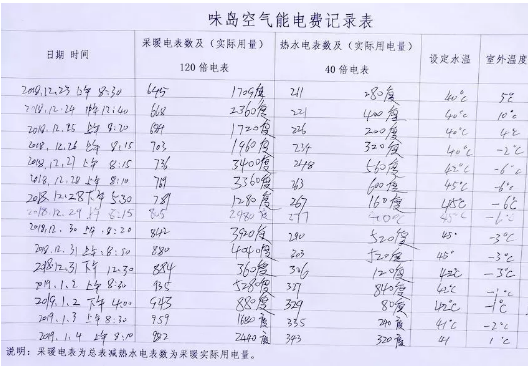 味岛空气能电费记录表
日期 时间 采暖电表数及(实际用量) 120 倍电表 热水电表数及(实际用量) 40 倍电表 设定水温 室外温度
2018.12.23 上午 8:30 645 1704度 211 280度 40℃ 5℃
2018.12.24 12:40 668 2360度 221 400度 40℃ 10℃
2018.12.25 上午 8:20 689 1720度 226 200度 40℃ 4℃
2018.12.26 上午 8:15 703 1960度 234 320度 40℃ -2℃
2018.12.27 上午 8:15 736 3400度 248 560度 42℃ -6℃
2018.12.28 上午 8:10 769 3360度 263 600度 45℃ -6℃
2018.12.28 下午 5:30 781 1280度 267 160度 45℃ -6℃
2018.12.29 上午 8:15 805 2480度 277 40℃ 45℃ -6℃
2018.12.30 上午 8:20 842 3920度 290 520度 45° -3℃
2018.12.31 上午 8:50 880 4040度 303 520度 45° -3℃
2018.12.31 下午 12:30 884 360度 306 120度 42℃ -3℃
2019.1.2 上午 8:30 935 5280度 327 840度 42℃ -1℃
2019.1.2 下午 4:00 943 880度 329 80度 42℃ -1℃
2019.1.3 上午 8:30 959 1680度 335 240度 41℃ -2℃
2019.1.4 上午 8:10 982 2440度 343 320度 41 1℃
说明:采暖电表为总表减热水电表数为采暖实际用电量。